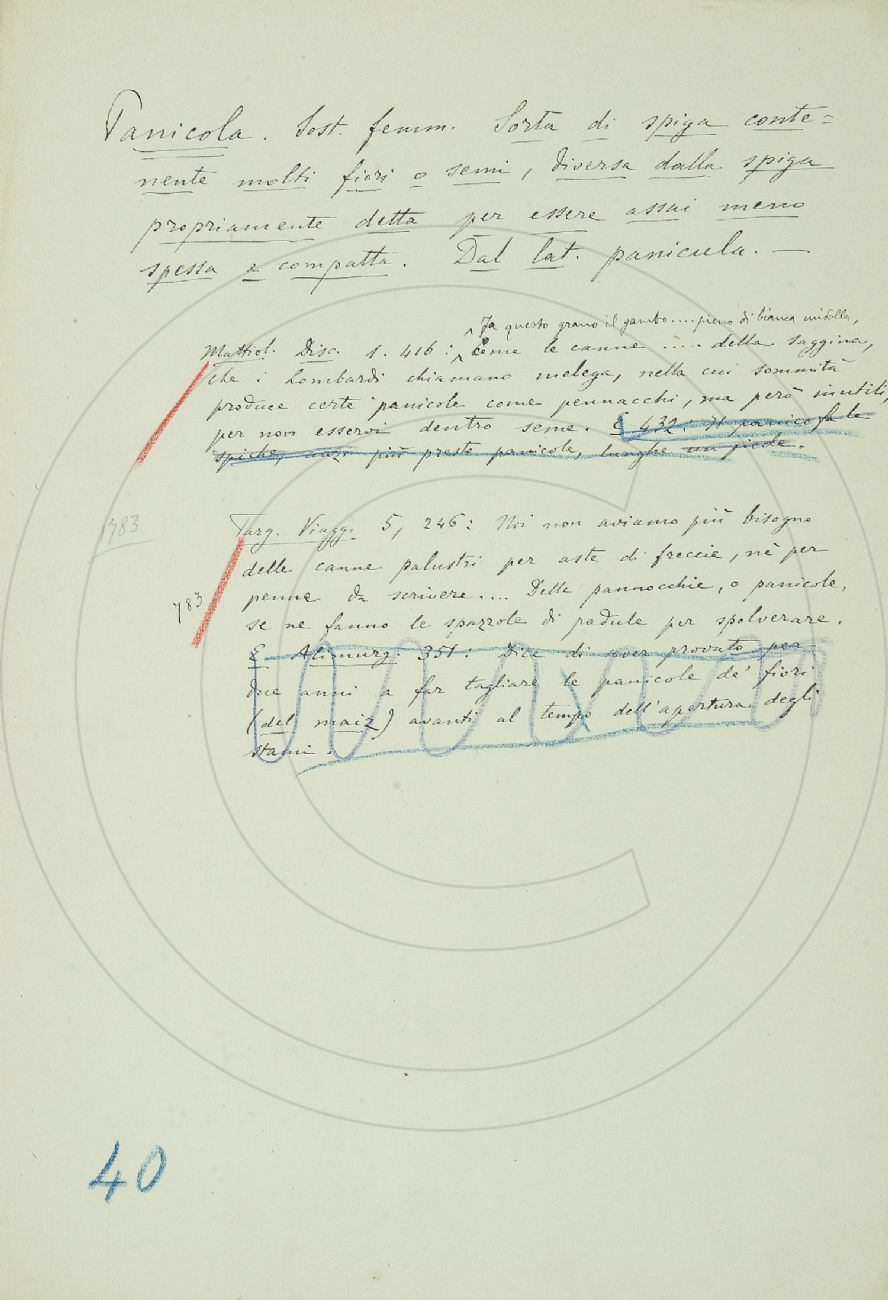 Panicola. Sost. femm. Sorta di spiga conte=
nente molti fiori o semi, diversa dalla spiga
propriamente detta per essere assai meno
spessa e compatta. Dal lat. panicula. —
Fa questo grano il gambo .... pieno di bianca midolla,
Mattiol. Disc. 1. 416: come le canne .... della saggina,
che i Lombardi chiamano melega, nella cui sommità
produce certe panicole come pennacchi, ma però inutili,
per non esservi dentro seme. E 432: Il panico fa le
spiche, anzi più presto panicole, lunghe un piede.
783
Targ. Viagg. 5, 246: Noi non aviamo più bisogno
delle canne palustri per aste di freccie, nè per
783
penne da scrivere.... Delle pannocchie, o panicole,
se ne fanno le spazzole di padule per spolverare.
E Alimurg. 351: Dice di aver provato per
due anni a far tagliare le panicole de' fiori
(del maiz) avanti al tempo dell'apertura degli
stami.
40